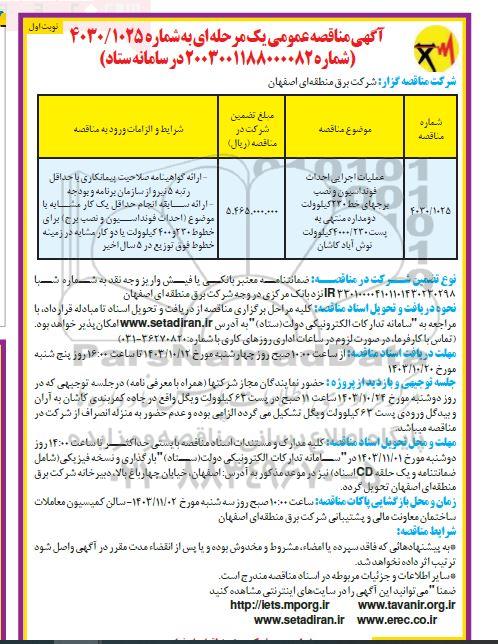 نوبت اول
آگهی مناقصه عمومی یک مرحله ای به شماره ۴۰۳۰/۱۰۲۵
(شماره ۲۰۰۳۰۰۱۱۸۸۰۰۰۰۸۲ در سامانه ستاد)
شرکت مناقصه گزار: شرکت برق منطقه ای اصفهان
شماره مناقصه
موضوع مناقصه
مبلغ تضمین شرکت در مناقصه (ریال)
شرایط و الزامات ورود به مناقصه
۴۰۳۰/۱۰۲۵
عملیات اجرایی احداث
فونداسیون و نصب
برجهای خط ۲۳۰ کیلوولت
دومداره منتهی به
پست ۴۰۰۰/۲۳۰ کیلوولت
نوش آباد کاشان
۵,۴۶۵,۰۰۰,۰۰۰
- ارائه گواهینامه صلاحیت پیمانکاری با حداقل
رتبه ۵ نیرو از سازمان برنامه و بودجه
- ارائه سابقه انجام حداقل یک کار مشابه با
موضوع (احداث فونداسیون و نصب برج) برای
خطوط ۲۳۰ و ۴۰۰ کیلوولت یا دو کار مشابه در زمینه
خطوط فوق توزیع در ۵ سال اخیر
نوع تضمین شرکت در مناقصه: ضمانتنامه معتبر بانکی یا فیش واریز وجه نقد به شماره شبا
نزد بانک مرکزی در وجه شرکت برق منطقه ای اصفهان
نحوه دریافت و تحویل اسناد مناقصه: کلیه مراحل برگزاری مناقصه از دریافت و تحویل اسناد تا مبادله قرارداد، با
مراجعه به "سامانه تدارکات الکترونیکی دولت (ستاد)" به آدرس www.setadiran.ir امکان پذیر خواهد بود.
(تماس با کارفرما، در صورت لزوم در ساعات اداری روزهای کاری با شماره: ۳۶۲۷۰۸۲۰-۰۳۱)
مهلت دریافت اسناد مناقصه: از ساعت ۱۰:۰۰ صبح روز چهارشنبه مورخ ۱۴۰۳/۱۰/۱۲ تا ساعت ۱۶:۰۰ روز پنج شنبه
مورخ ۱۴۰۳/۱۰/۲۰
جلسه توجیهی و بازدید از پروژه: حضور نمایندگان مجاز شرکتها (همراه با معرفی نامه) در جلسه توجیهی که در
روز دوشنبه مورخ ۱۴۰۳/۱۰/۲۴ ساعت ۱۱ صبح در پست ۶۳ کیلوولت ویگل واقع در جاده کمربندی کاشان به آران
و بیدگل ورودی پست ۶۳ کیلوولت ویگل تشکیل می گردد الزامی بوده و عدم حضور به منزله انصراف از شرکت در
مناقصه میباشد.
مهلت و محل تحویل اسناد مناقصه: کلیه مدارک و مستندات اسناد مناقصه بایستی حداکثر تا ساعت ۱۴:۰۰ روز
دوشنبه مورخ ۱۴۰۳/۱۱/۰۱ در "سامانه تدارکات الکترونیکی دولت (ستاد)" بارگذاری و نسخه فیزیکی (شامل
ضمانتنامه و یک حلقه CD اسناد) نیز در موعد مذکور به آدرس: اصفهان، خیابان چهارباغ بالا، دبیرخانه شرکت برق
منطقه ای اصفهان تحویل گردد.
زمان و محل بازگشایی پاکات مناقصه: ساعت ۱۰:۰۰ صبح روز سه شنبه مورخ ۱۴۰۳/۱۱/۰۲-سالن کمیسیون معاملات
ساختمان معاونت مالی و پشتیبانی شرکت برق منطقه ای اصفهان
شرایط مناقصه:
*به پیشنهادهائی که فاقد سپرده یا امضاء، مشروط و مخدوش بوده و یا پس از انقضاء مدت مقرر در آگهی واصل شود
ترتیب اثر داده نخواهد شد.
*سایر اطلاعات و جزئیات مربوطه در اسناد مناقصه مندرج است.
ضمنا "می توانید این آگهی را در سایت‌های اینترنتی مشاهده کنید
http://iets.mporg.ir www.tavanir.org.ir
www.setadiran.ir www.erec.co.ir